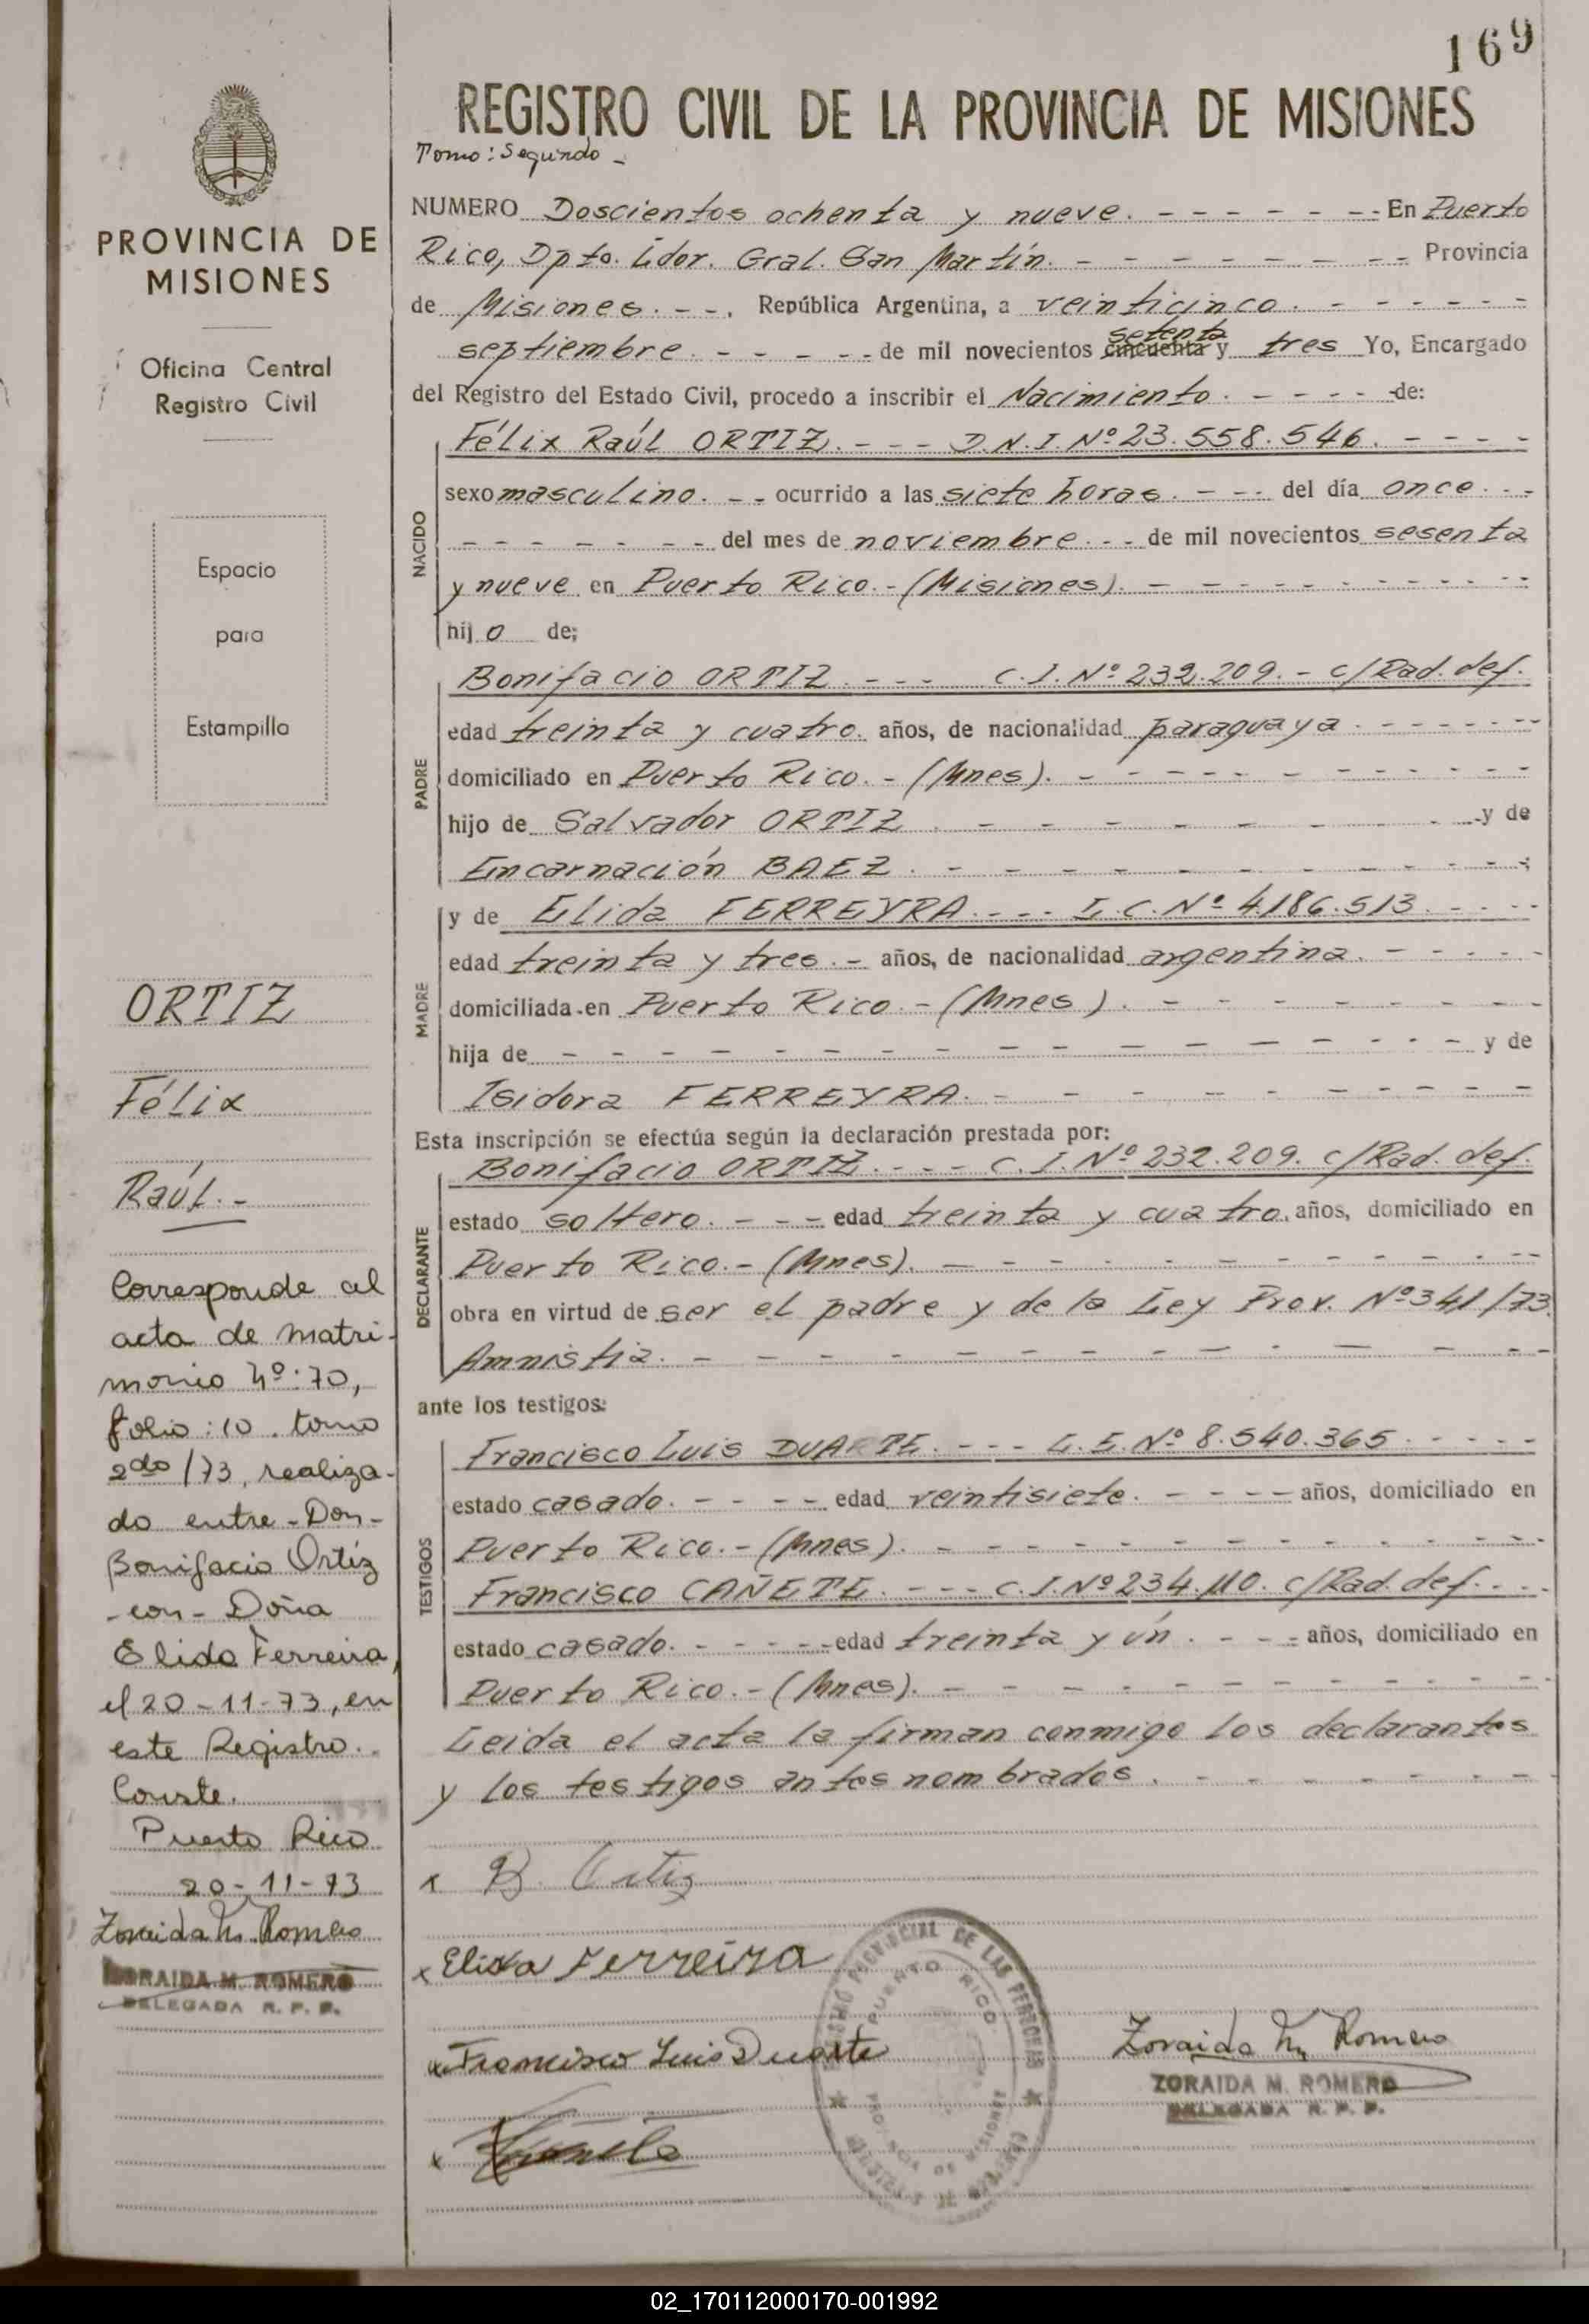 169
REGISTRO CIVIL DE LA PROVINCIA DE MISIONES
Tomo: Segundo -
NUMERO Doscientos ochenta y nueve. - - - - - - - En Puerto
Rico, Dpto. Ldor. Gral. San Martín. - - - - - - - - Provincia
de Misiones. - -, República Argentina, a veinticinco. - - - - - -
setenta
septiembre. - - - - - - de mil novecientos cincuenta y tres Yo, Encargado
del Registro del Estado Civil, procedo a inscribir el Nacimiento. - - - - - de:
NACIDO
Félix Raúl ORTIZ. - - - D.N.I. Nº 23.558.546. - - - -
sexo masculino. - - ocurrido a las siete horas. - - - del día once. - -
- - - - - - - - del mes de noviembre. - - de mil novecientos sesenta
y nueve en Puerto Rico. - (Misiones). - - - - - - - - - - -
hijo de;
PADRE
Bonifacio ORTIZ. - - - C.I. Nº 232.209. - c/Rad. def.
edad treinta y cuatro. años, de nacionalidad paraguaya. - - - - - - -
domiciliado en Puerto Rico. - (Mnes). - - - - - - - - - - -
hijo de Salvador ORTIZ. - - - - - - - - - - y de
Encarnación BAEZ. - - - - - - - - - - - - ;
MADRE
y de Elida FERREYRA. - - - L.C. Nº 4.186.513. - - - -
edad treinta y tres. - años, de nacionalidad argentina. - - - - - -
domiciliada en Puerto Rico. - (Mnes). - - - - - - - - -
hija de - - - - - - - - - - - - - - - - - - y de
Isidora FERREYRA. - - - - - - - - - - -
Esta inscripción se efectúa según la declaración prestada por:
DECLARANTE
Bonifacio ORTIZ. - - - C.I. Nº 232.209. c/Rad. def.
estado soltero. - - - edad treinta y cuatro. años, domiciliado en
Puerto Rico. - (Mnes). - - - - - - - - - - - -
obra en virtud de ser el padre y de la Ley Prov. Nº 341/73.
Amnistia. - - - - - - - - - - - - - - -
ante los testigos:
TESTIGOS
Francisco Luis DUARTE. - - - L.E. Nº 8.540.365. - - - -
estado casado. - - - - edad veintisiete. - - - - años, domiciliado en
Puerto Rico. - (Mnes). - - - - - - - - - - - -
Francisco CAÑETE. - - - C.I. Nº 234.110. c/Rad. def. - -
estado casado. - - - - - edad treinta y ún. - - - años, domiciliado en
Puerto Rico. - (Mnes). - - - - - - - - - - -
Leida el acta la firman conmigo los declarantes
y los testigos antes nombrados. - - - - - - - -
x B. Ortiz
x Elida Ferreira
x Francisco Luis Duarte
REGISTRO PROVINCIAL DE LAS PERSONAS
PUERTO RICO
PROVINCIA DE MISIONES
Zoraida M. Romero
ZORAIDA M. ROMERO
DELEGADA R. P. P.
x
PROVINCIA DE
MISIONES
Oficina Central
Registro Civil
Espacio
para
Estampilla
ORTIZ
Félix
Raúl. -
Corresponde al
acta de matri-
monio Nº: 70,
folio: 10. tomo
2do/73, realiza-
do entre - Don -
Bonifacio Ortíz
- con - Doña
Elida Ferreira,
el 20-11-73, en
este Registro.
Conste.
Puerto Rico
20-11-73
Zoraida M. Romero
ZORAIDA M. ROMERO
DELEGADA R. P. P.
02_170112000170-001992